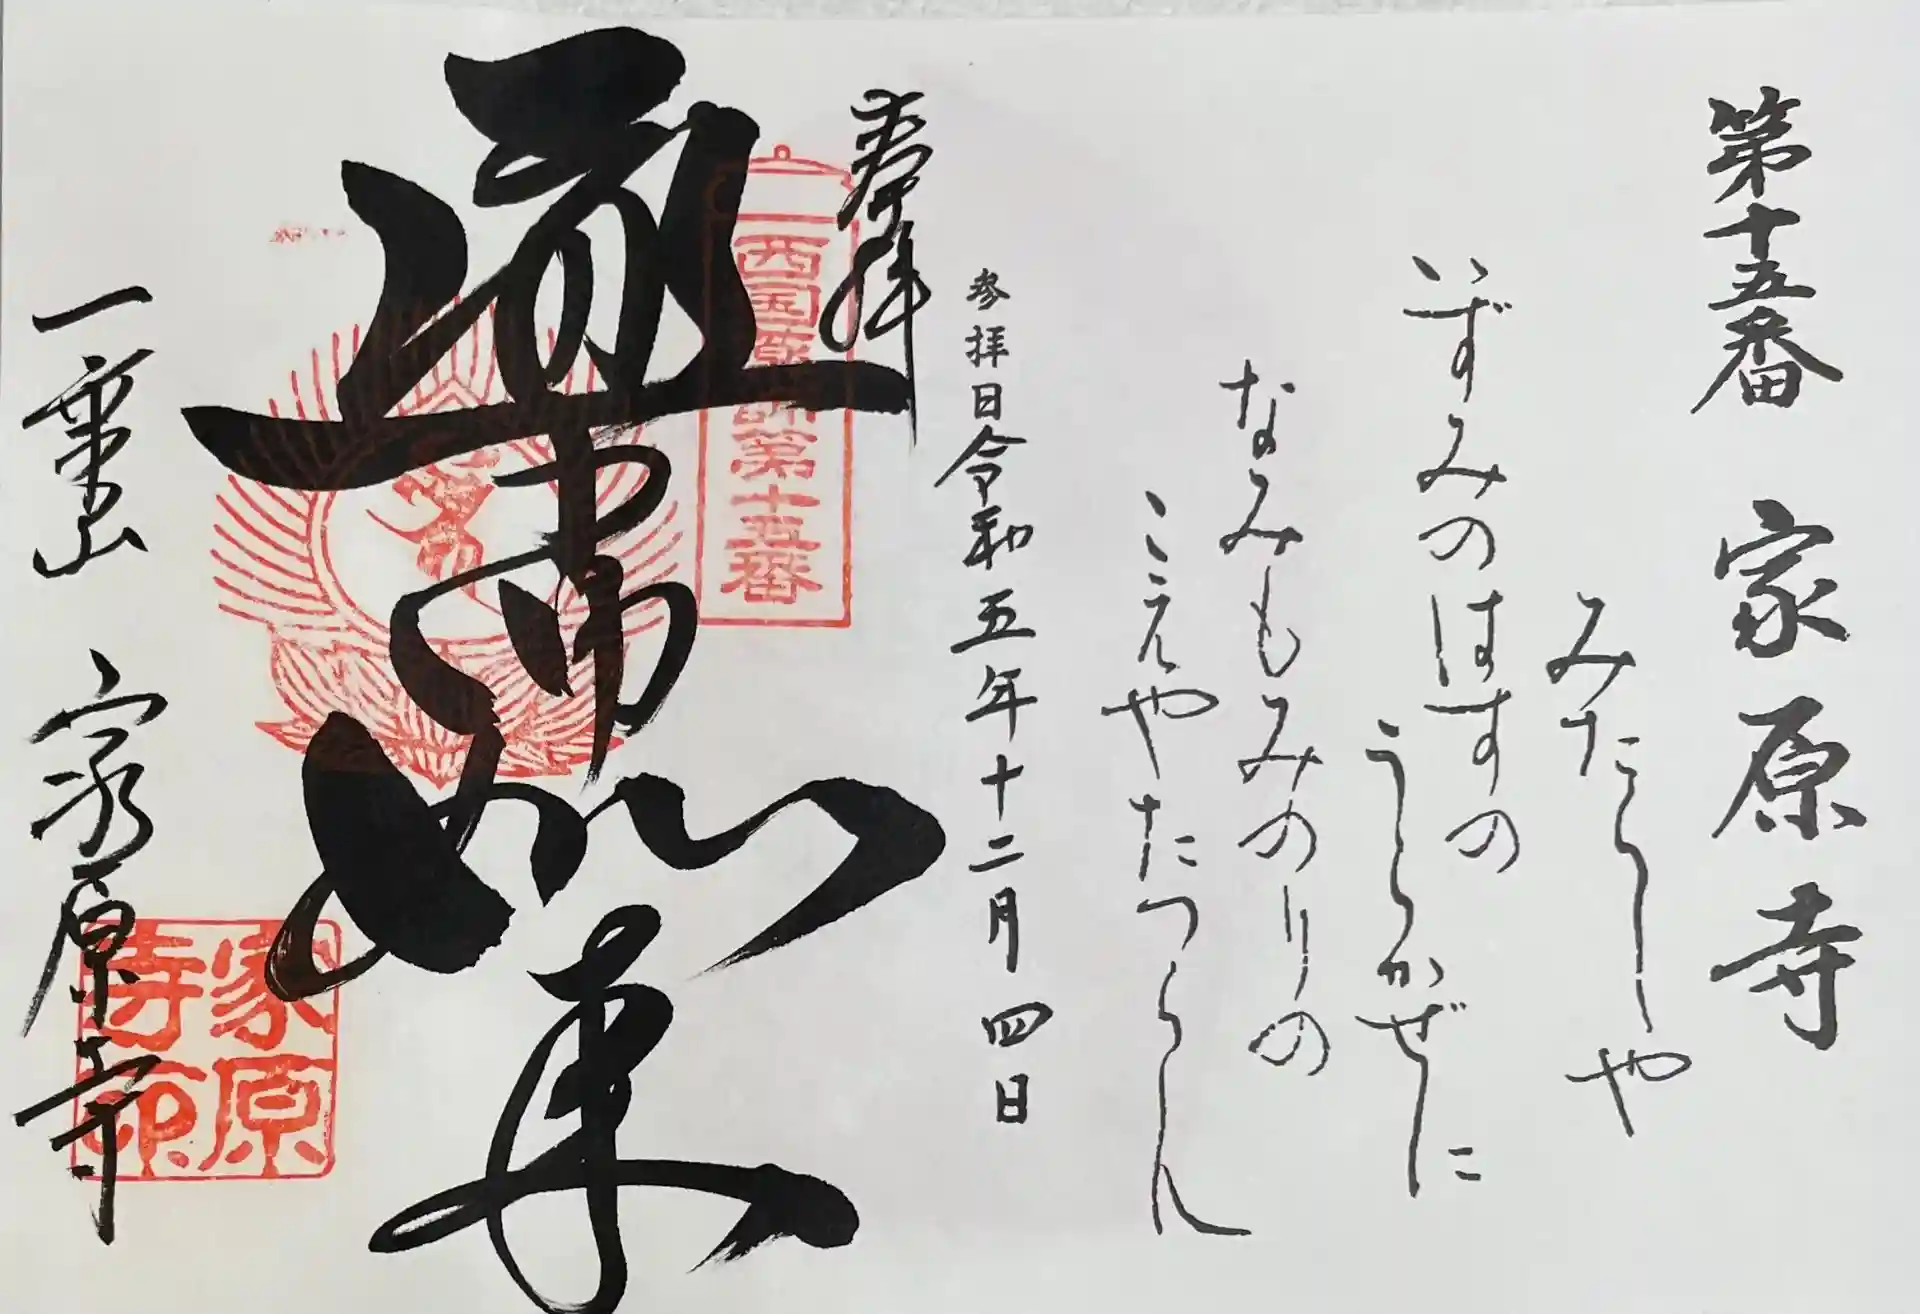 第十五番 家原寺
みたらしや
いずみのはすの
うらかぜに
なみもみのりの
こえやたつらん
参拝日令和五年十二月四日
奉拝
西国薬師第十五番
薬師如来
一乗山 家原寺
家原寺印